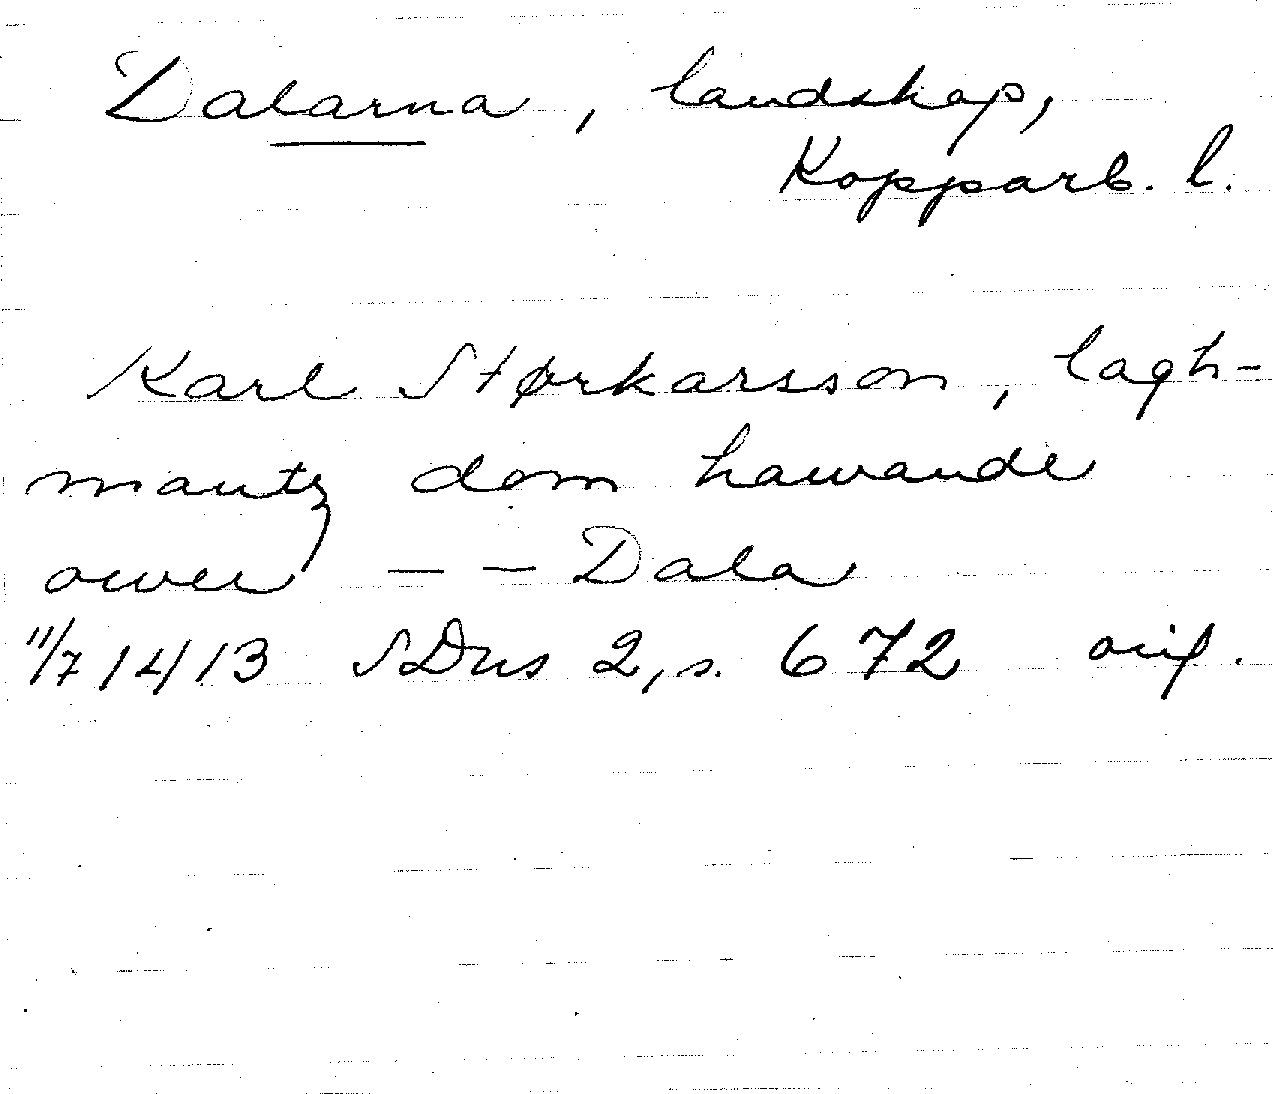 Dalarna, landskap,
Kopparb. l.
Karl Størkarsson, lagh-
mantz dom hawande
ower – – Dala
11/7 1413 SDns 2, s. 672 orig.